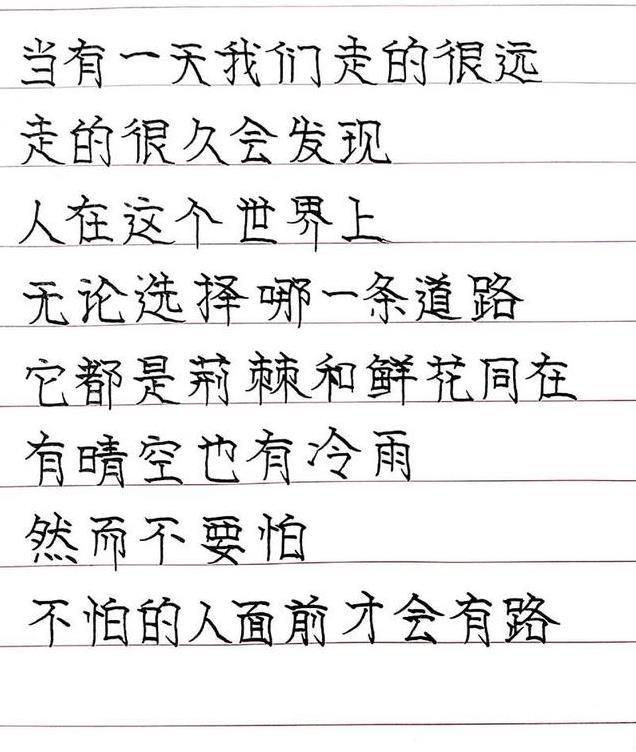 当有一天我们走的很远
走的很久会发现
人在这个世界上
无论选择哪一条道路
它都是荆棘和鲜花同在
有晴空也有冷雨
然而不要怕
不怕的人面前才会有路